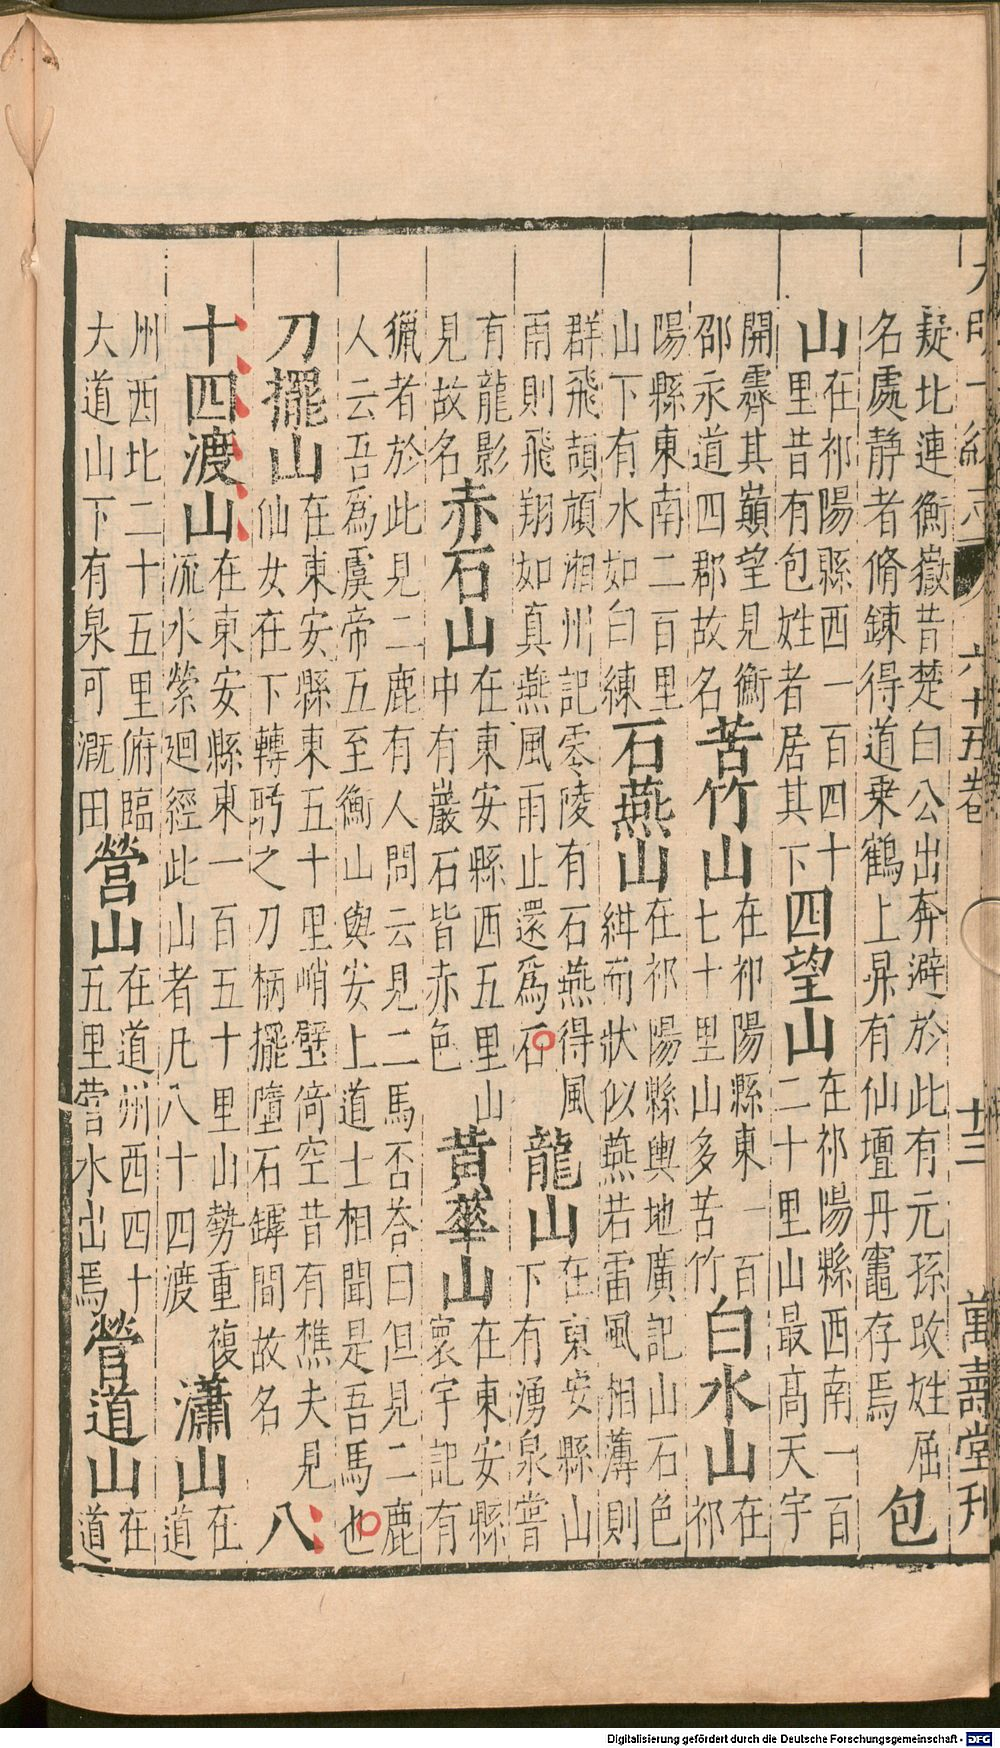 大明一統志 六十五卷 萬壽堂刊
疑北連衡嶽昔楚白公出奔避於此有元孫改姓屈
名處靜者脩鍊得道乗鶴上昇有仙壇丹竈存焉 包
山 在祁陽縣西一百四十里昔有包姓者居其下 四望山 在祁陽縣西南一百二十里山最髙天宇
開霽其巔望見衡邵永道四郡故名 苦竹山 在祁陽縣東一百七十里山多苦竹 白水山 在祁
陽縣東南二百里山下有水如白練 石燕山 在祁陽縣輿地廣記山石色紺而狀似燕若雷風相薄則
群飛頡頏湘州記零陵有石燕得風雨則飛翔如真燕風雨止還爲石 龍山 在東安縣山下有湧泉嘗
有龍影見故名 赤石山 在東安縣西五里山中有巖石皆赤色 黃華山 在東安縣寰宇記有
獵者於此見二鹿有人問云見二馬否荅曰但見二鹿
人云吾爲虞帝五至衡山與安上道士相聞是吾馬也
刀擺山 在東安縣東五十里峭壁倚空昔有樵夫見仙女在下轉眄之刀柄擺墮石罅間故名 八
十四渡山 在東安縣東一百五十里山勢重複流水縈迴經此山者凡八十四渡 瀟山 在道
州西北二十五里俯臨大道山下有泉可漑田 營山 在道州西四十五里營水出焉 營道山 在道
Digitalisierung gefördert durch die Deutsche Forschungsgemeinschaft - DFG